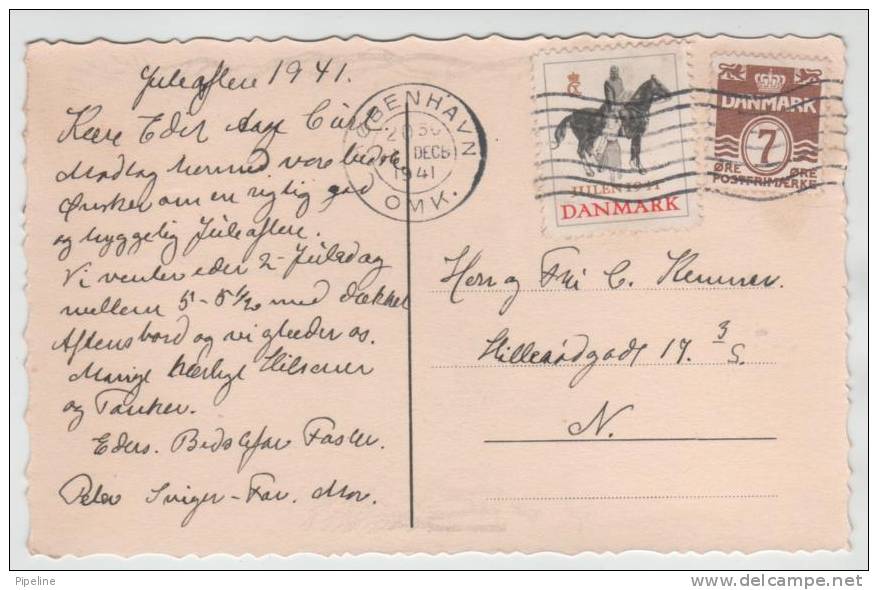 Juleaften 1941.
Kære Eder Aage
Modtag hermed vore bedste
Ønsker om en rigtig god
og hyggelig Juleaften.
Vi venter eder 2-Juledag
mellem 5-5½ med dækket
Aftensbord og vi glæder os.
Mange kærlige Hilsener
og Tanker.
Eders. Bedstefar Faster.
Peter Inger-Far. Mor.
KØBENHAVN
DECB
1941
OMK.
JULEN 1941
DANMARK
DANMARK
7
ØRE ØRE
POSTFRIMÆRKE
Herr og Fru C.
Hillerødgade 17. 3
S.
N.
Pipeline
www.delcampe.net